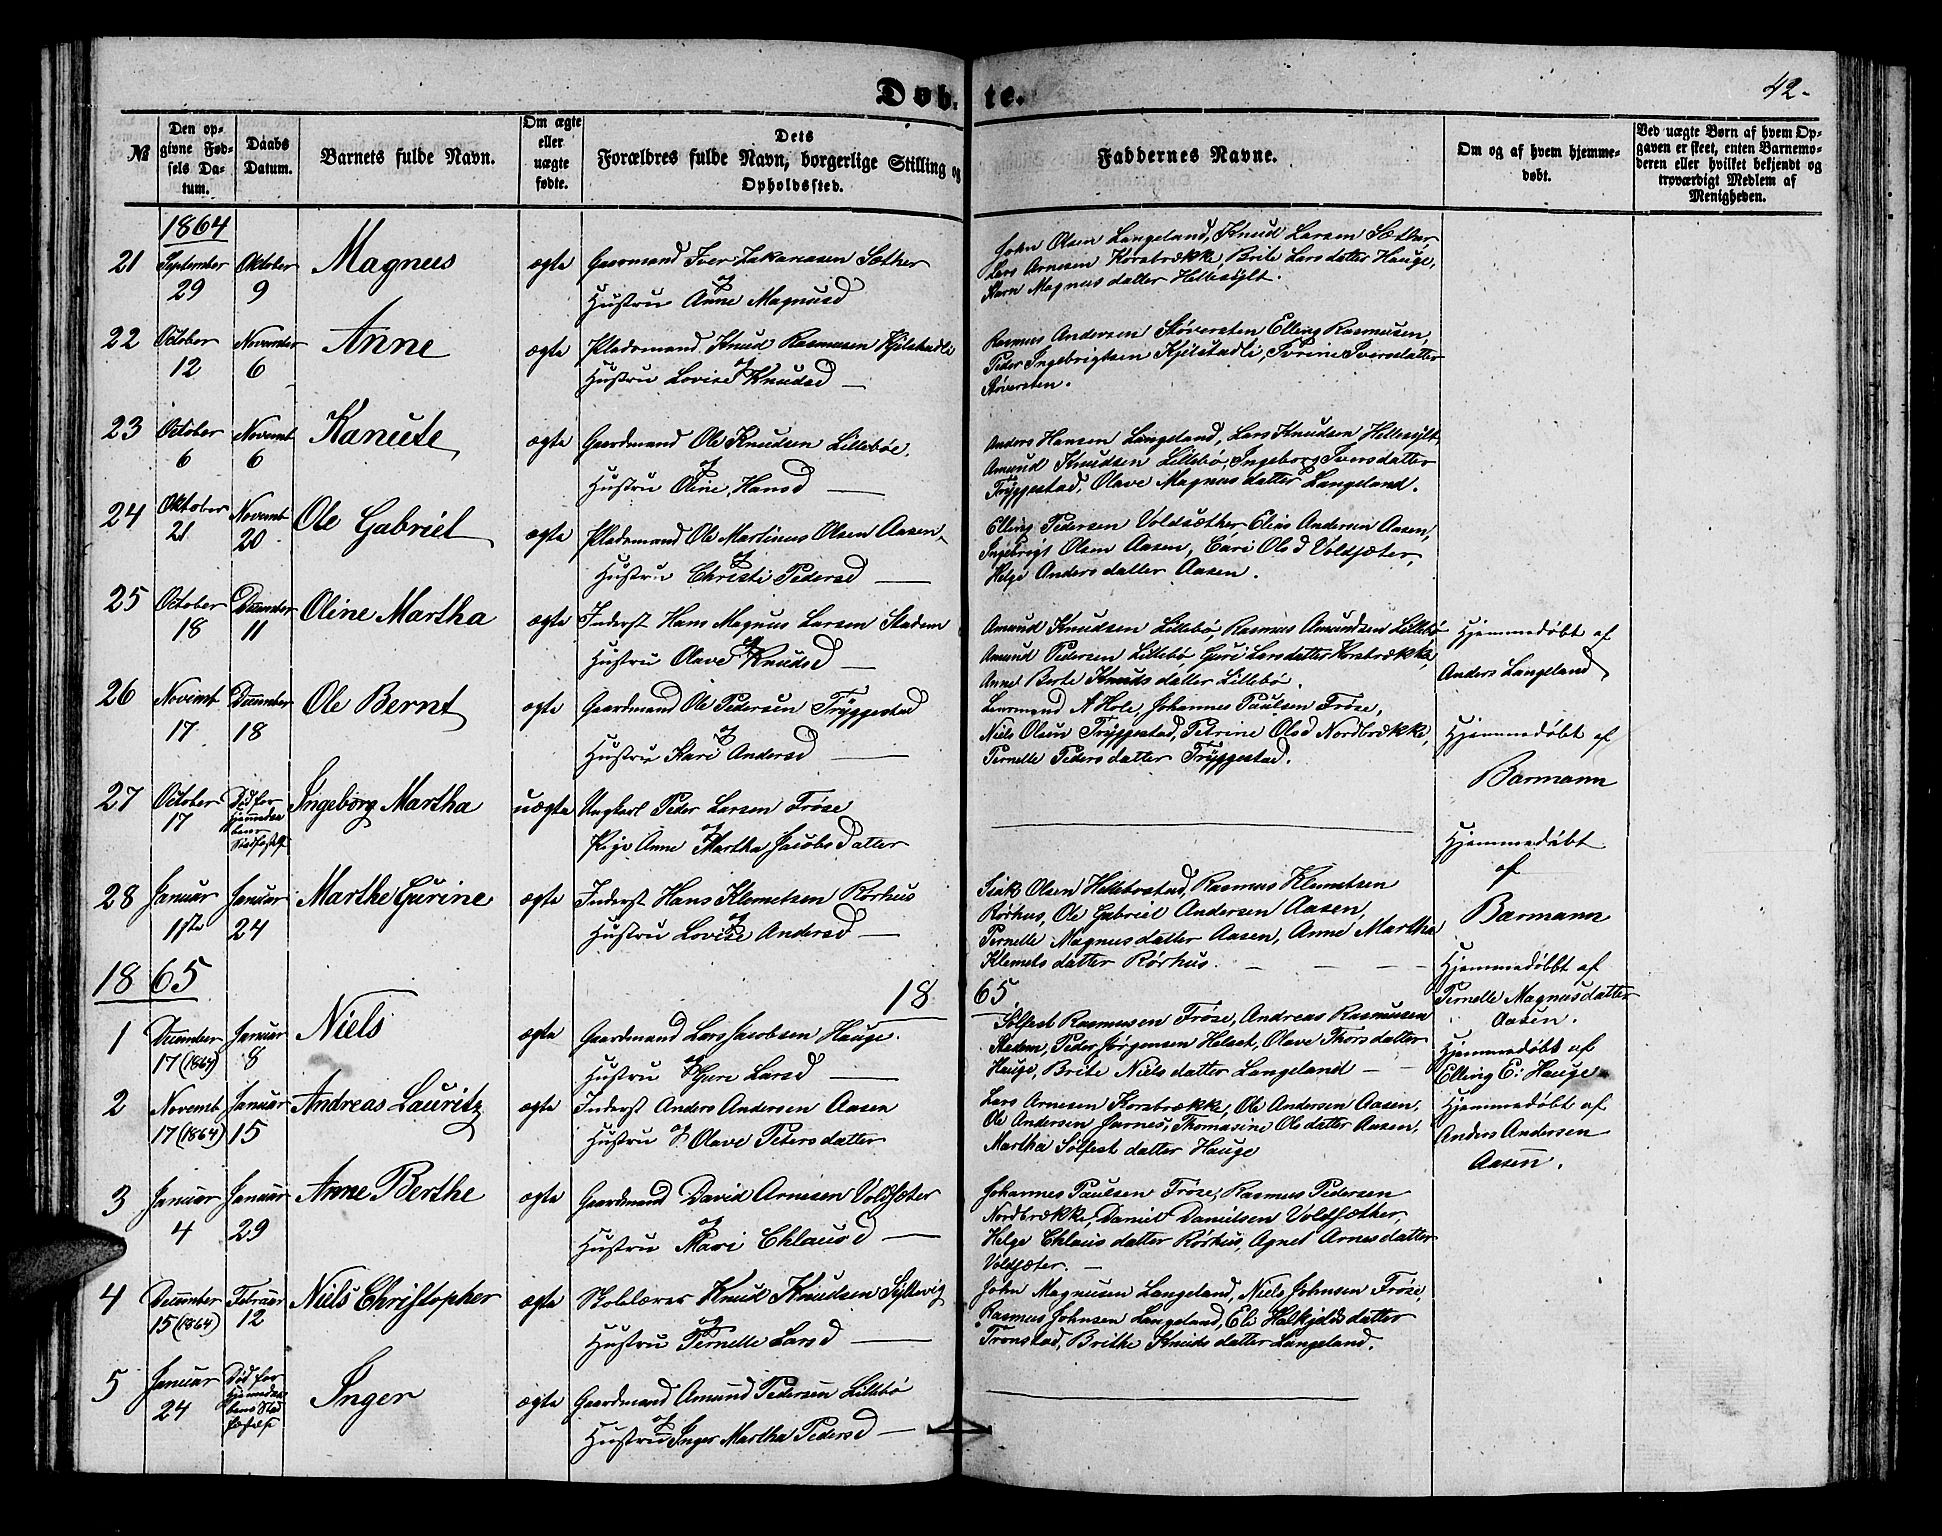 Døb-te.
42-
№
Den op-
givne Fød-
sels Da-
tum.
Daabs
Datum.
Barnets fulde Navn.
Om ægte
eller
uægte
fødte.
Dets
Forældres fulde Navn, borgerlige Stilling og
Opholdssted.
Faddernes Navne.
Om og af hvem hjemme-
døbt.
Ved uægte Børn af hvem Op-
gaven er skeet, enten Barnemo-
deren eller hvilket bekjendt og
troværdigt Medlem af
Menigheden.
1864
21 September 29 Oktober 9 Magnus ægte Gaarmand Iver Zakariasen Sæther
og
Hustru Anne Magnusd
John Olsen Langeland, Knud Larsen Sæther
Lars Arnesen Korsbrække, Brite Larsdatter Hauge,
Karn Magnusdatter Hellesylt.
22 October 12 November 6 Anne ægte Pladsmand Knud Rasmusen Kjelstadli
og
Hustru Lovise Knudsd —
Rasmus Andersen Støversten Elling Rasmusen,
Peder Ingebrigtsen Kjelstadli, Serine Iversdatter
Støversten.
23 October 6 Novembr 6 Kanute ægte Gaardmand Ole Knudsen Lillebøe,
og
Hustru Oline Hansd —
Anders Hansen Langeland, Lars Knudsen Hellesylt
Amund Knudsen Lillebø, Ingeborg Iversdatter
Tryggestad, Olave Magnusdatter Langeland.
24 Oktober 21 Novembr 20 Ole Gabriel ægte Pladsmand Ole Martinus Olsen Aasen,
og
Hustru Christi Pedersd —
Elling Pedersen Voldsæther Elias Andersen Aasen,
Ingebrigt Olsen Aasen, Cari Olsd Voldsæter,
Helge Andersdatter Aasen.
25 October 18 December 11 Oline Martha ægte Inderst Hans Magnus Larsen Stadem
og
Hustru Olave Knudsd —
Amund Knudsen Lillebø, Rasmus Amundsen Lillebø
Amund Pedersen Lillebø, Guri Larsdatter Korsbrække,
Anne Berte Knutsdatter Lillebø.
Hjemmedøbt af
Anders Langeland
26 Novembr 17 December 18 Ole Bernt ægte Gaardmand Ole Pedersen Tryggestad
og
Hustru Kari Andersd —
Lensmand A Hole, Johannes Paulsen Frøse,
Niels Olsen Tryggestad, Petrine Olsd Nordbrække,
Pernelle Pedersdatter Tryggestad.
Hjemmedøbt af
Barmann
27 October 17 Død før
Hjemmedaa
bens
Stadfæstelse Ingeborg Martha uægte Ungkarl Peder Larsen Frøse
og
Pige Anne Martha Jacobsdatter
Hjemmedøbt
af
Barmann
28 Januar 11te Januar 24 Marthe Gurine ægte Inderst Hans Klemetsen Rørhus
og
Hustru Lovise Andersd —
Sivk Olsen Hellebostad, Rasmus Klemetsen
Rørhus, Ole Gabriel Andersen Aasen,
Pernelle Magnusdatter Aasen, Anne Martha
Klemetsdatter Rørhus.
Hjemmedøbbt af
Pernelle Magnusdatter
Aasen.
1865
18 65
1 December 17 (1864) Januar 8 Niels ægte Gaardmand Lars Jacobsen Hauge.
Hustru og Guri Larsd —
Solfest Rasmusen Frøse, Andreas Rasmusen
Stadem, Peder Jørgensen Helset, Olave Thorsdatter
Hauge, Brite Nielsdatter Langeland —
Hjemmedøbt af
Elling E. Hauge
2 Novemb 17 (1864) Januar 15 Andreas Lauritz ægte Inderst Anders Andersen Aasen
Hustru og Olave Petersdatter
Lars Arnesen Korsbrække, Ole Andersen Aasen,
Ole Andersen Jarnes, Thomasine Olsdatter Aasen,
Martha Solfestdatter Hauge
Hjemmedøbt af
Anders Andersen
Aasen.
3 Januar 4 Januar 29 Anne Berthe ægte Gaardmand David Arnesen Voldsæter
og
Hustru Mari Chlausd —
Johannes Paulsen Frøse, Rasmus Pedersen
Nordbrække, Daniel Danielsen Voldsæther,
Helge Chlausdatter Rørhus, Agnet Arnesdatter
Voldsæter. —
4 December 15 (1864) Februar 12 Niels Christopher ægte Skolelærer Knud Knudsen Syltevig
og
Hustru Pernelle Larsd —
John Magnusen Langeland, Niels Johnsen Frøse,
Rasmus Johnsen Langeland, Eli Halkjeldsdatter
Tronstad, Brithe Knutsdatter Langeland.
5 Januar 24 Død før
Hjemmedaa
bens Stad
fæstelse Inger ægte Gaardmand Amund Pedersen Lillebø
og
Hustru Inger Martha Pedersd —